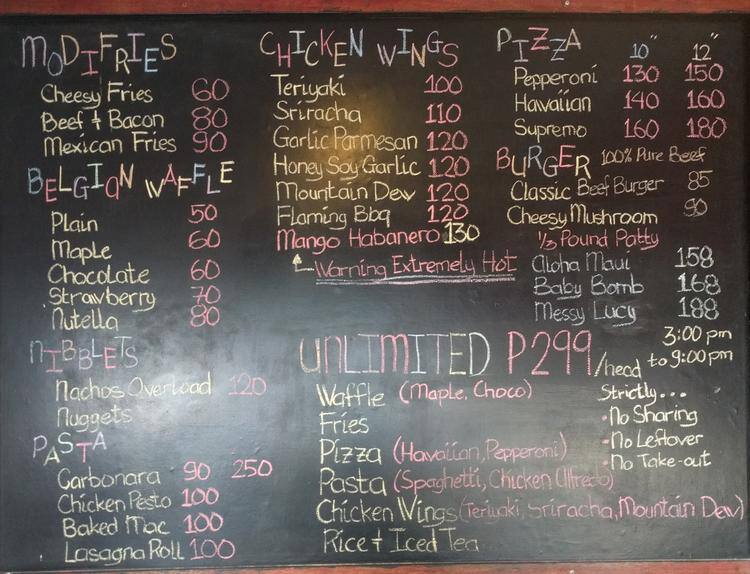 MODIFRIES
Cheesy Fries 60
Beef & Bacon 80
Mexican Fries 90
BELGIAN WAFFLE
Plain 50
Maple 60
Chocolate 60
Strawberry 70
Nutella 80
NIBBLETS
Nachos Overload 120
Nuggets
PASTA
Carbonara 90 250
Chicken Pesto 100
Baked Mac 100
Lasagna Roll 100
CHICKEN WINGS
Teriyaki 100
Sriracha 110
Garlic Parmesan 120
Honey Soy Garlic 120
Mountain Dew 120
Flaming Bbq 120
Mango Habanero 130
Warning Extremely Hot
PIZZA 10" 12"
Pepperoni 130 150
Hawaiian 140 160
Supremo 160 180
BURGER 100% Pure Beef
Classic Beef Burger 85
Cheesy Mushroom 90
1/3 Pound Patty
Aloha Maui 158
Baby Bomb 168
Messy Lucy 188
UNLIMITED P299/head
3:00 pm
to 9:00 pm
Waffle (Maple, Choco)
Fries
Pizza (Hawaiian, Pepperoni)
Pasta (Spaghetti, Chicken Alfredo)
Chicken Wings (Teriyaki, Sriracha, Mountain Dew)
Rice & Iced Tea
Strictly...
• No Sharing
• No Leftover
• No Take-out